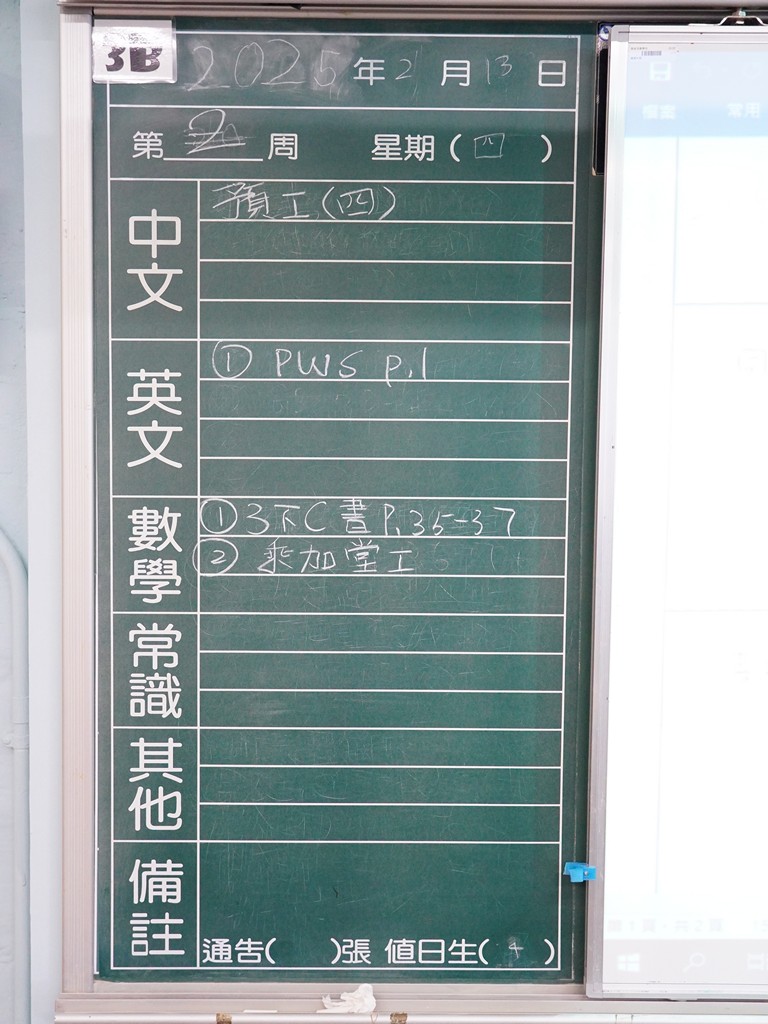 3B
2025年2月13日
第2周 星期(四)
中文
預工(四)
英文
① PWS p.1
數學
① 3下C書P.35-37
② 乘加堂工
常識
其他
備註
通告( )張 值日生(4)
檔案 常用